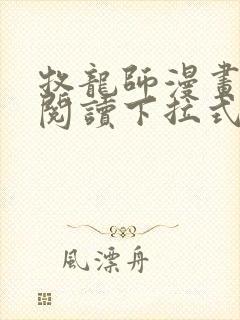 牧龍師漫畫
閱讀下拉式
風漂舟